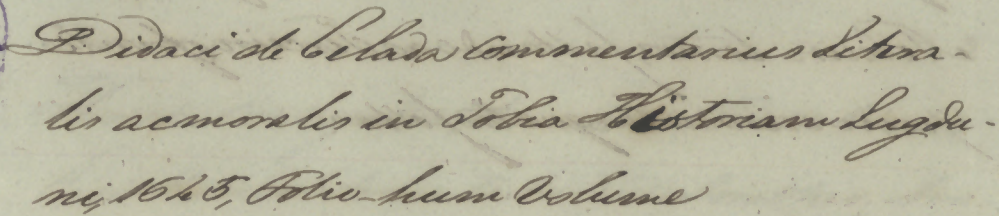 P. Didaci de Celada Commentarius Litera-
lis ac moralis in Tobia Historiam Lugdu-
ni, 1645, Folio - hum Volume